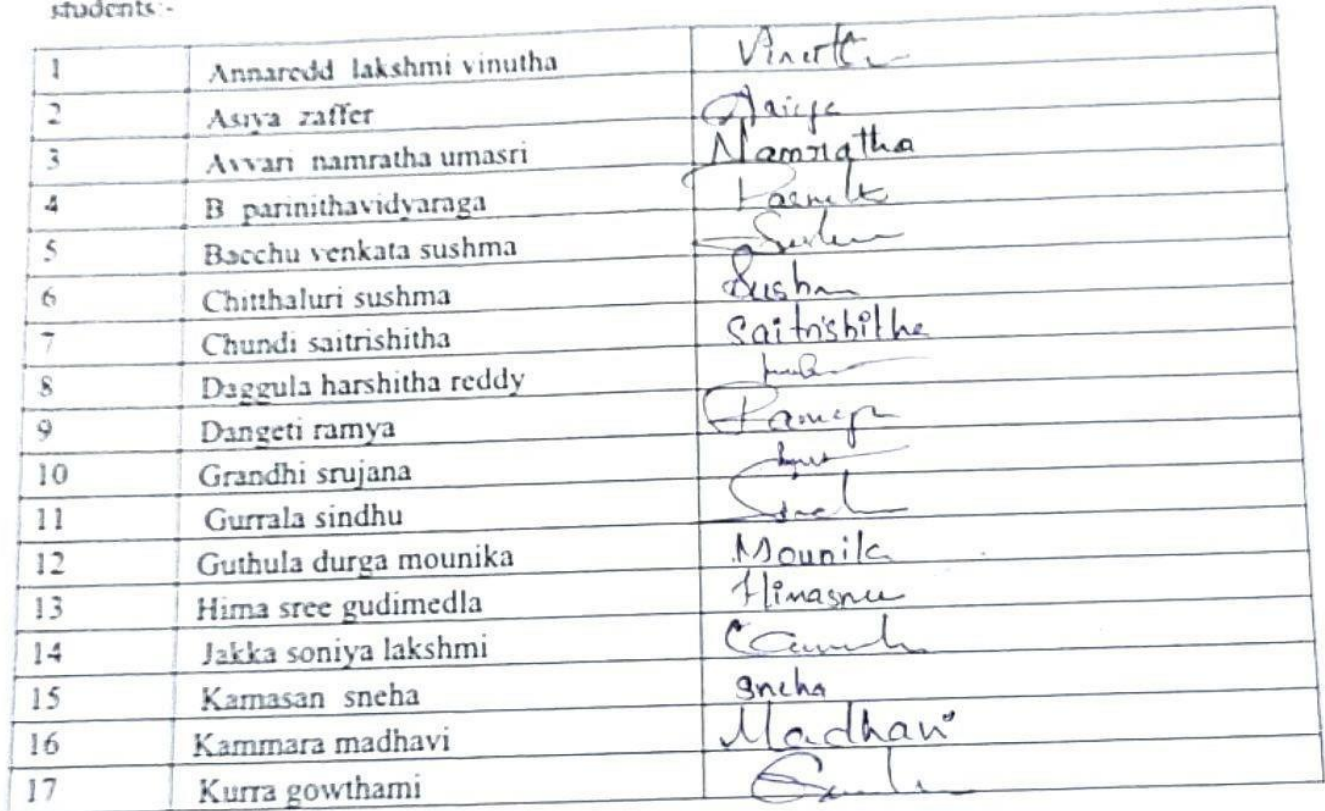 students:-
1 Annaredd lakshmi vinutha
2 Asiya zaffer
3 Avvari namratha umasri Namratha
4 B parinithavidyaraga
5 Bacchu venkata sushma
6 Chitthaluri sushma
7 Chundi saitrishitha Saitrishitha
8 Daggula harshitha reddy
9 Dangeti ramya
10 Grandhi srujana
11 Gurrala sindhu
12 Guthula durga mounika Mounika
13 Hima sree gudimedla
14 Jakka soniya lakshmi
15 Kamasan sneha Sneha
16 Kammara madhavi Madhavi
17 Kurra gowthami